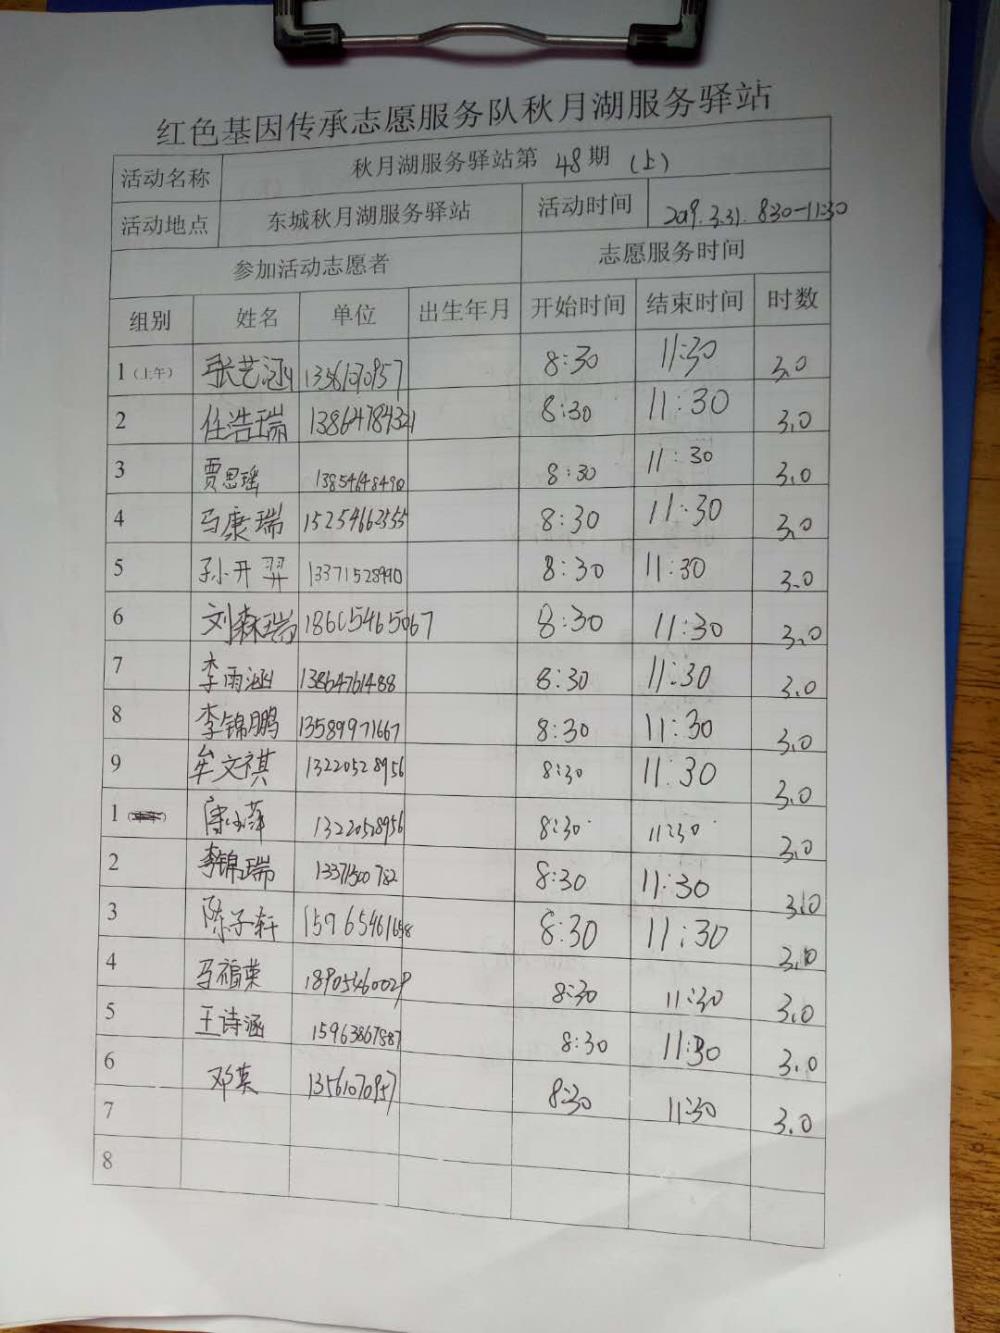 红色基因传承志愿服务队秋月湖服务驿站
活动名称 秋月湖服务驿站第 48 期 (上)
活动地点 东城秋月湖服务驿站 活动时间 2019.3.31. 8:30-11:30
参加活动志愿者 志愿服务时间
组别 姓名 单位 出生年月 开始时间 结束时间 时数
1(上午) 张艺涵 13561070957 8:30 11:30 3.0
2 任浩瑞 13864784321 8:30 11:30 3.0
3 贾思瑶 13854648490 8:30 11:30 3.0
4 马康瑞 15254662555 8:30 11:30 3.0
5 孙开羿 13371528990 8:30 11:30 3.0
6 刘森瑞 18605465067 8:30 11:30 3.0
7 李雨涵 13864761488 8:30 11:30 3.0
8 李锦鹏 13589971667 8:30 11:30 3.0
9 牟文祺 13220528956 8:30 11:30 3.0
1 13220528956 8:30 11:30 3.0
2 李锦瑞 13371500782 8:30 11:30 3.0
3 陈子轩 15965461658 8:30 11:30 3.0
4 马福荣 18905460029 8:30 11:30 3.0
5 王诗涵 15963867887 8:30 11:30 3.0
6 邓英 13561070957 8:30 11:30 3.0
7
8